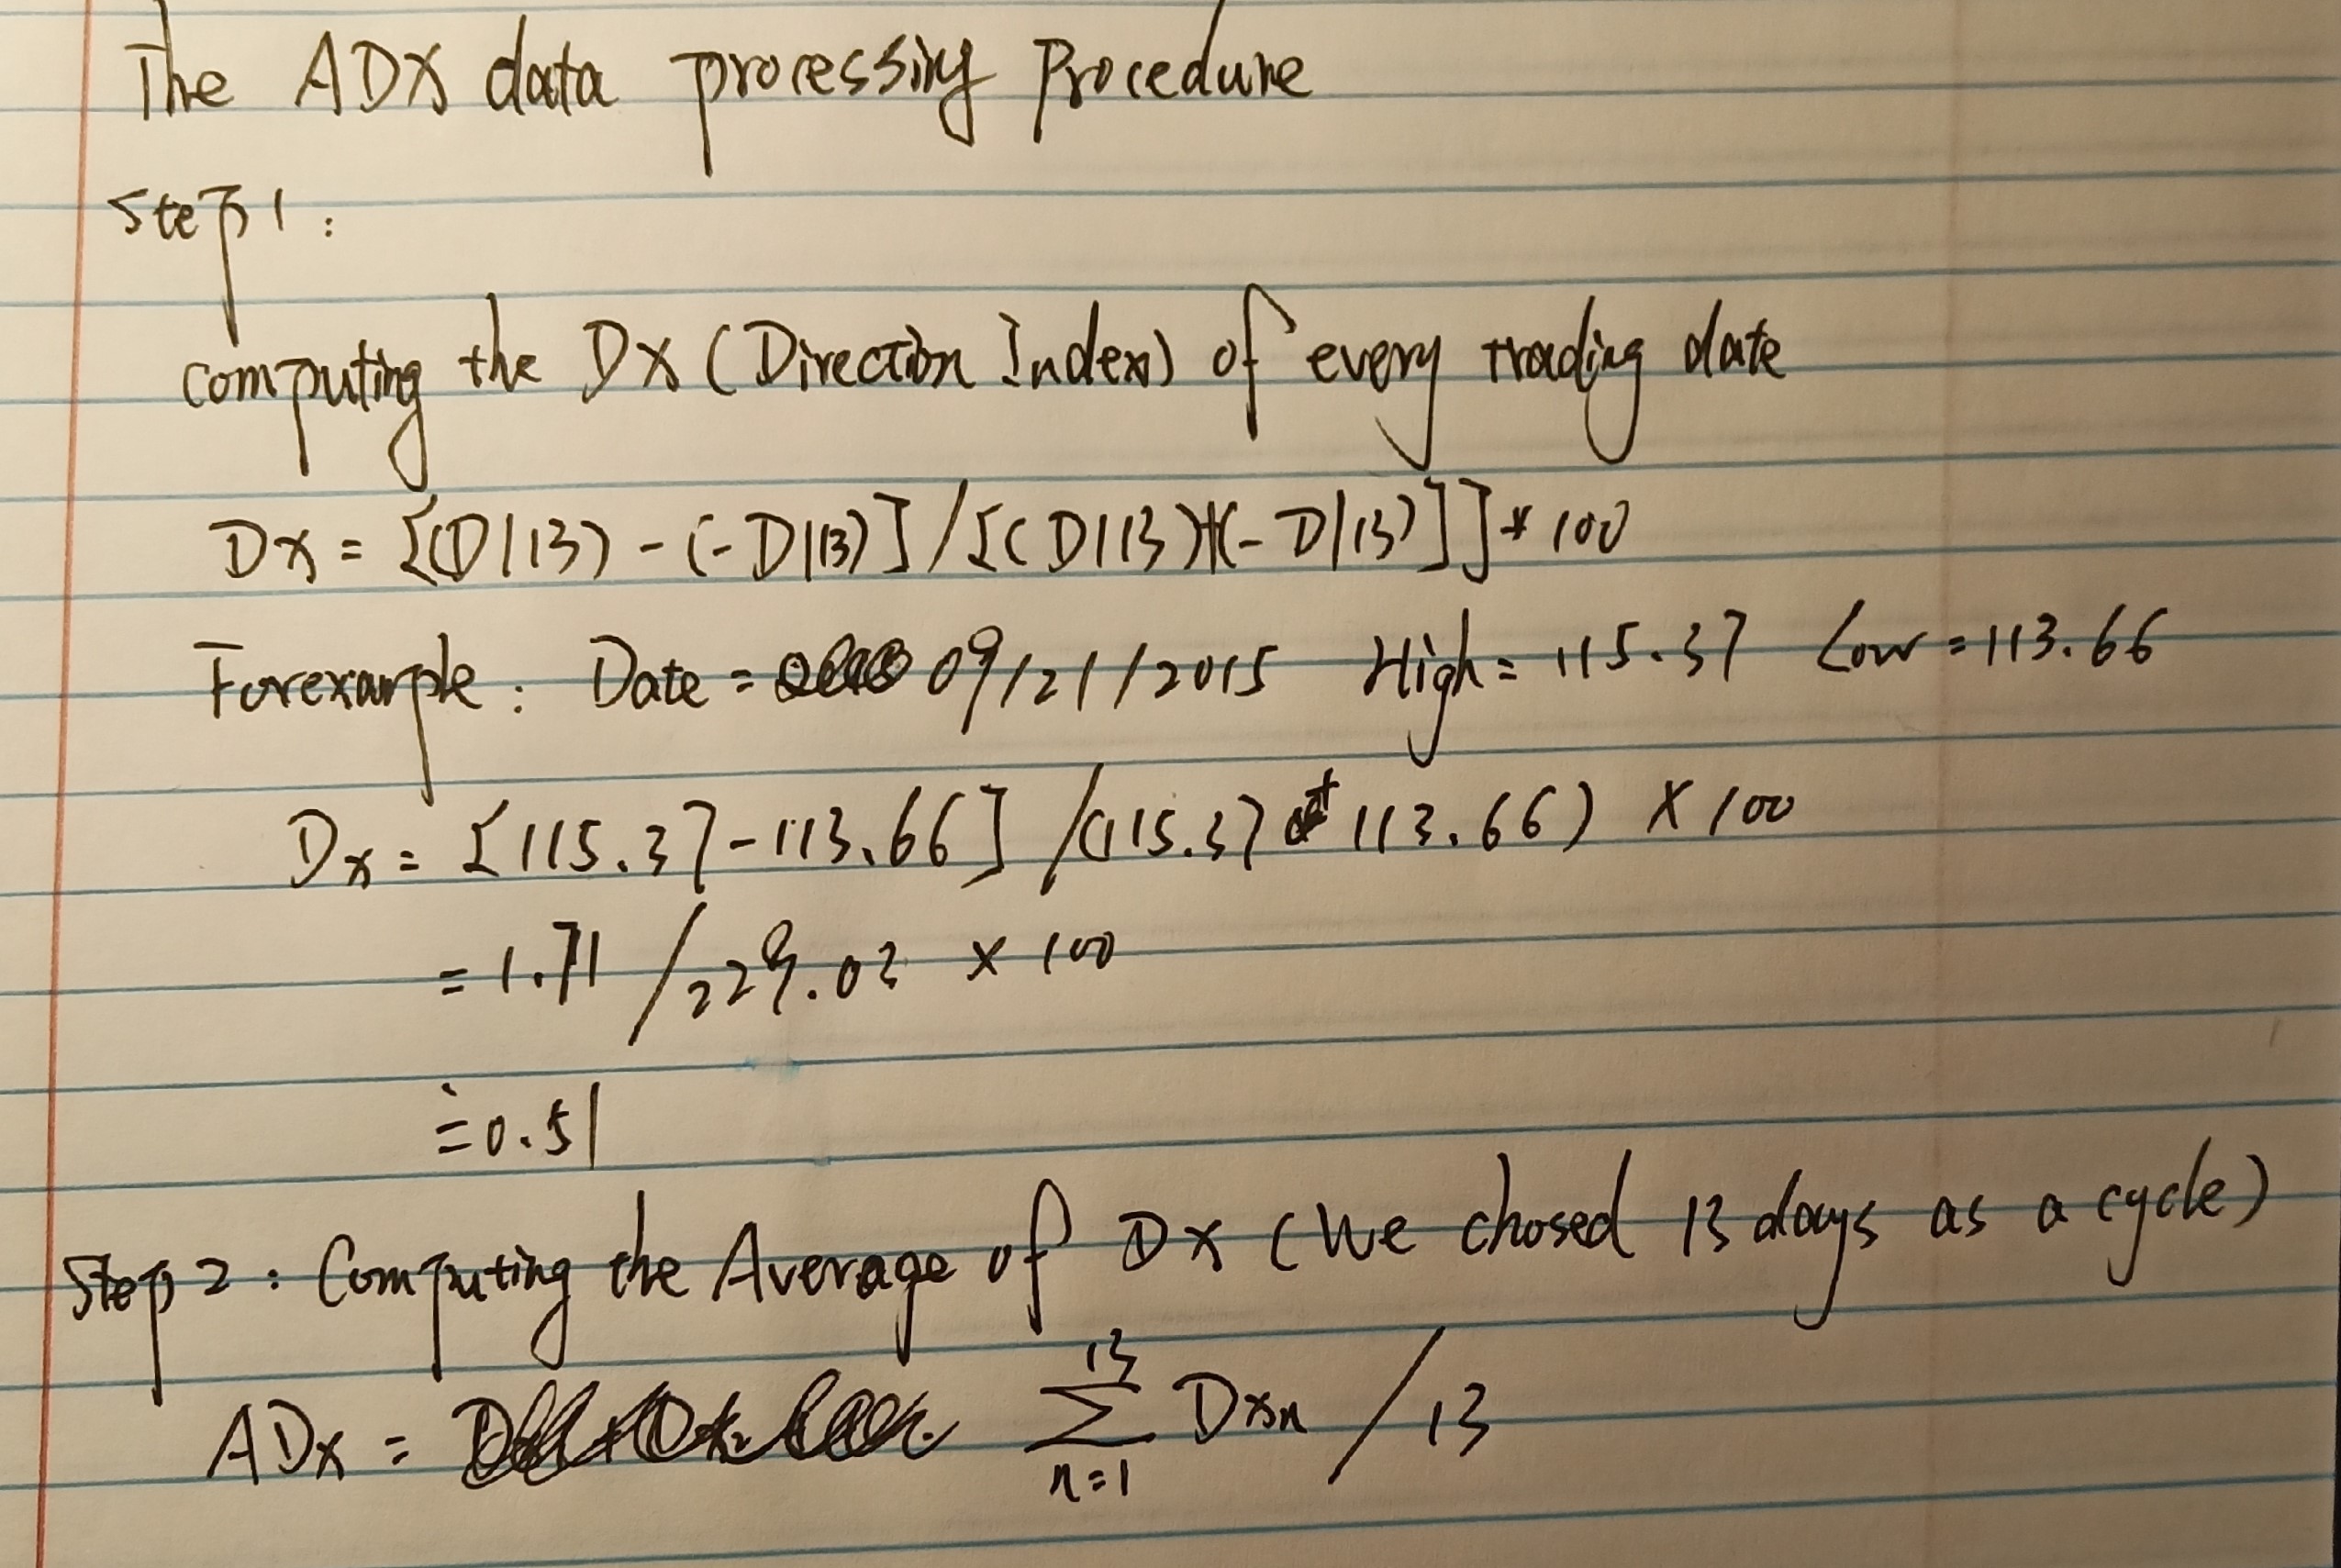 The ADX data processing Procedure
Step 1:
computing the DX (Direction Index) of every trading date
DX = [(D|13) - (-D|13)] / [(D|13)+(-D|13)]] * 100
Forexample: Date = 09/21/2015 High = 115.37 Low = 113.66
Dx = [115.37-113.66] / (115.37 + 113.66) × 100
= 1.71 / 229.03 × 100
≐ 0.51
Step 2: Computing the Average of Dx (We chosed 13 days as a cycle)
ADx = ∑ 13 n=1 Dxn / 13